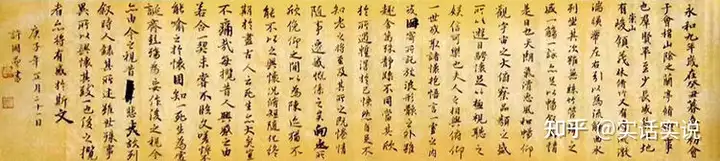 永和九年歲在癸丑暮春之初會
于會稽山陰之蘭亭脩禊事
也羣賢畢至少長咸集此地
有崇山峻領茂林脩竹又有清流激
湍暎帶左右引以為流觴曲水
列坐其次雖無絲竹管弦之
盛一觴一詠亦足以暢敘幽情
是日也天朗氣清惠風和暢仰
觀宇宙之大俯察品類之盛
所以遊目騁懷足以極視聽之
娛信可樂也夫人之相與俯仰
一世或取諸懷抱悟言一室之內
或因寄所託放浪形骸之外雖
趣舍萬殊靜躁不同當其欣
於所遇暫得於己怏然自足不
知老之將至及其所之既惓情
隨事遷感慨係之矣向之所
欣俛仰之間以為陳迹猶不
能不以之興懷況脩短隨化終
期於盡古人云死生亦大矣豈
不痛哉每攬昔人興感之由
若合一契未嘗不臨文嗟悼不
能喻之於懷固知一死生為虛
誕齊彭殤為妄作後之視今
亦由今之視昔悲夫故列
敘時人錄其所述雖世殊事
異所以興懷其致一也後之攬
者亦將有感於斯文
庚子年五月二十一日
許國書
知乎 @实话实说